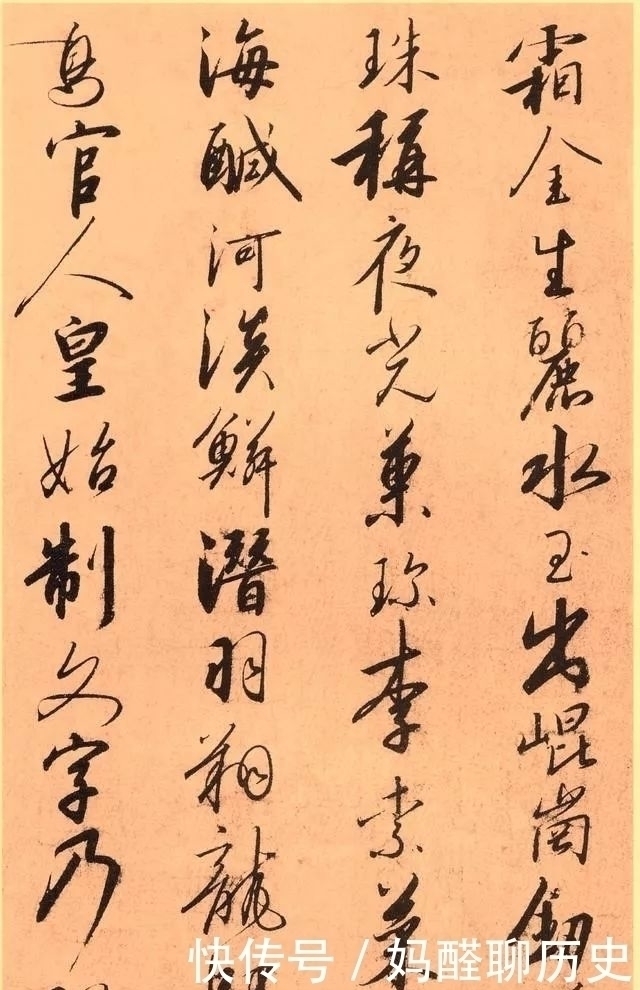 霜金生麗水玉出崐崗劒
珠稱夜光菓珍李柰菜
海醎河淡鱗潛羽翔龍
鳥官人皇始制文字乃
快传号 / 妈醛聊历史